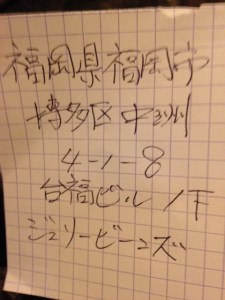 福岡県福岡市
博多区中洲
4-1-8
台福ビル1F
ジェリービーンズ